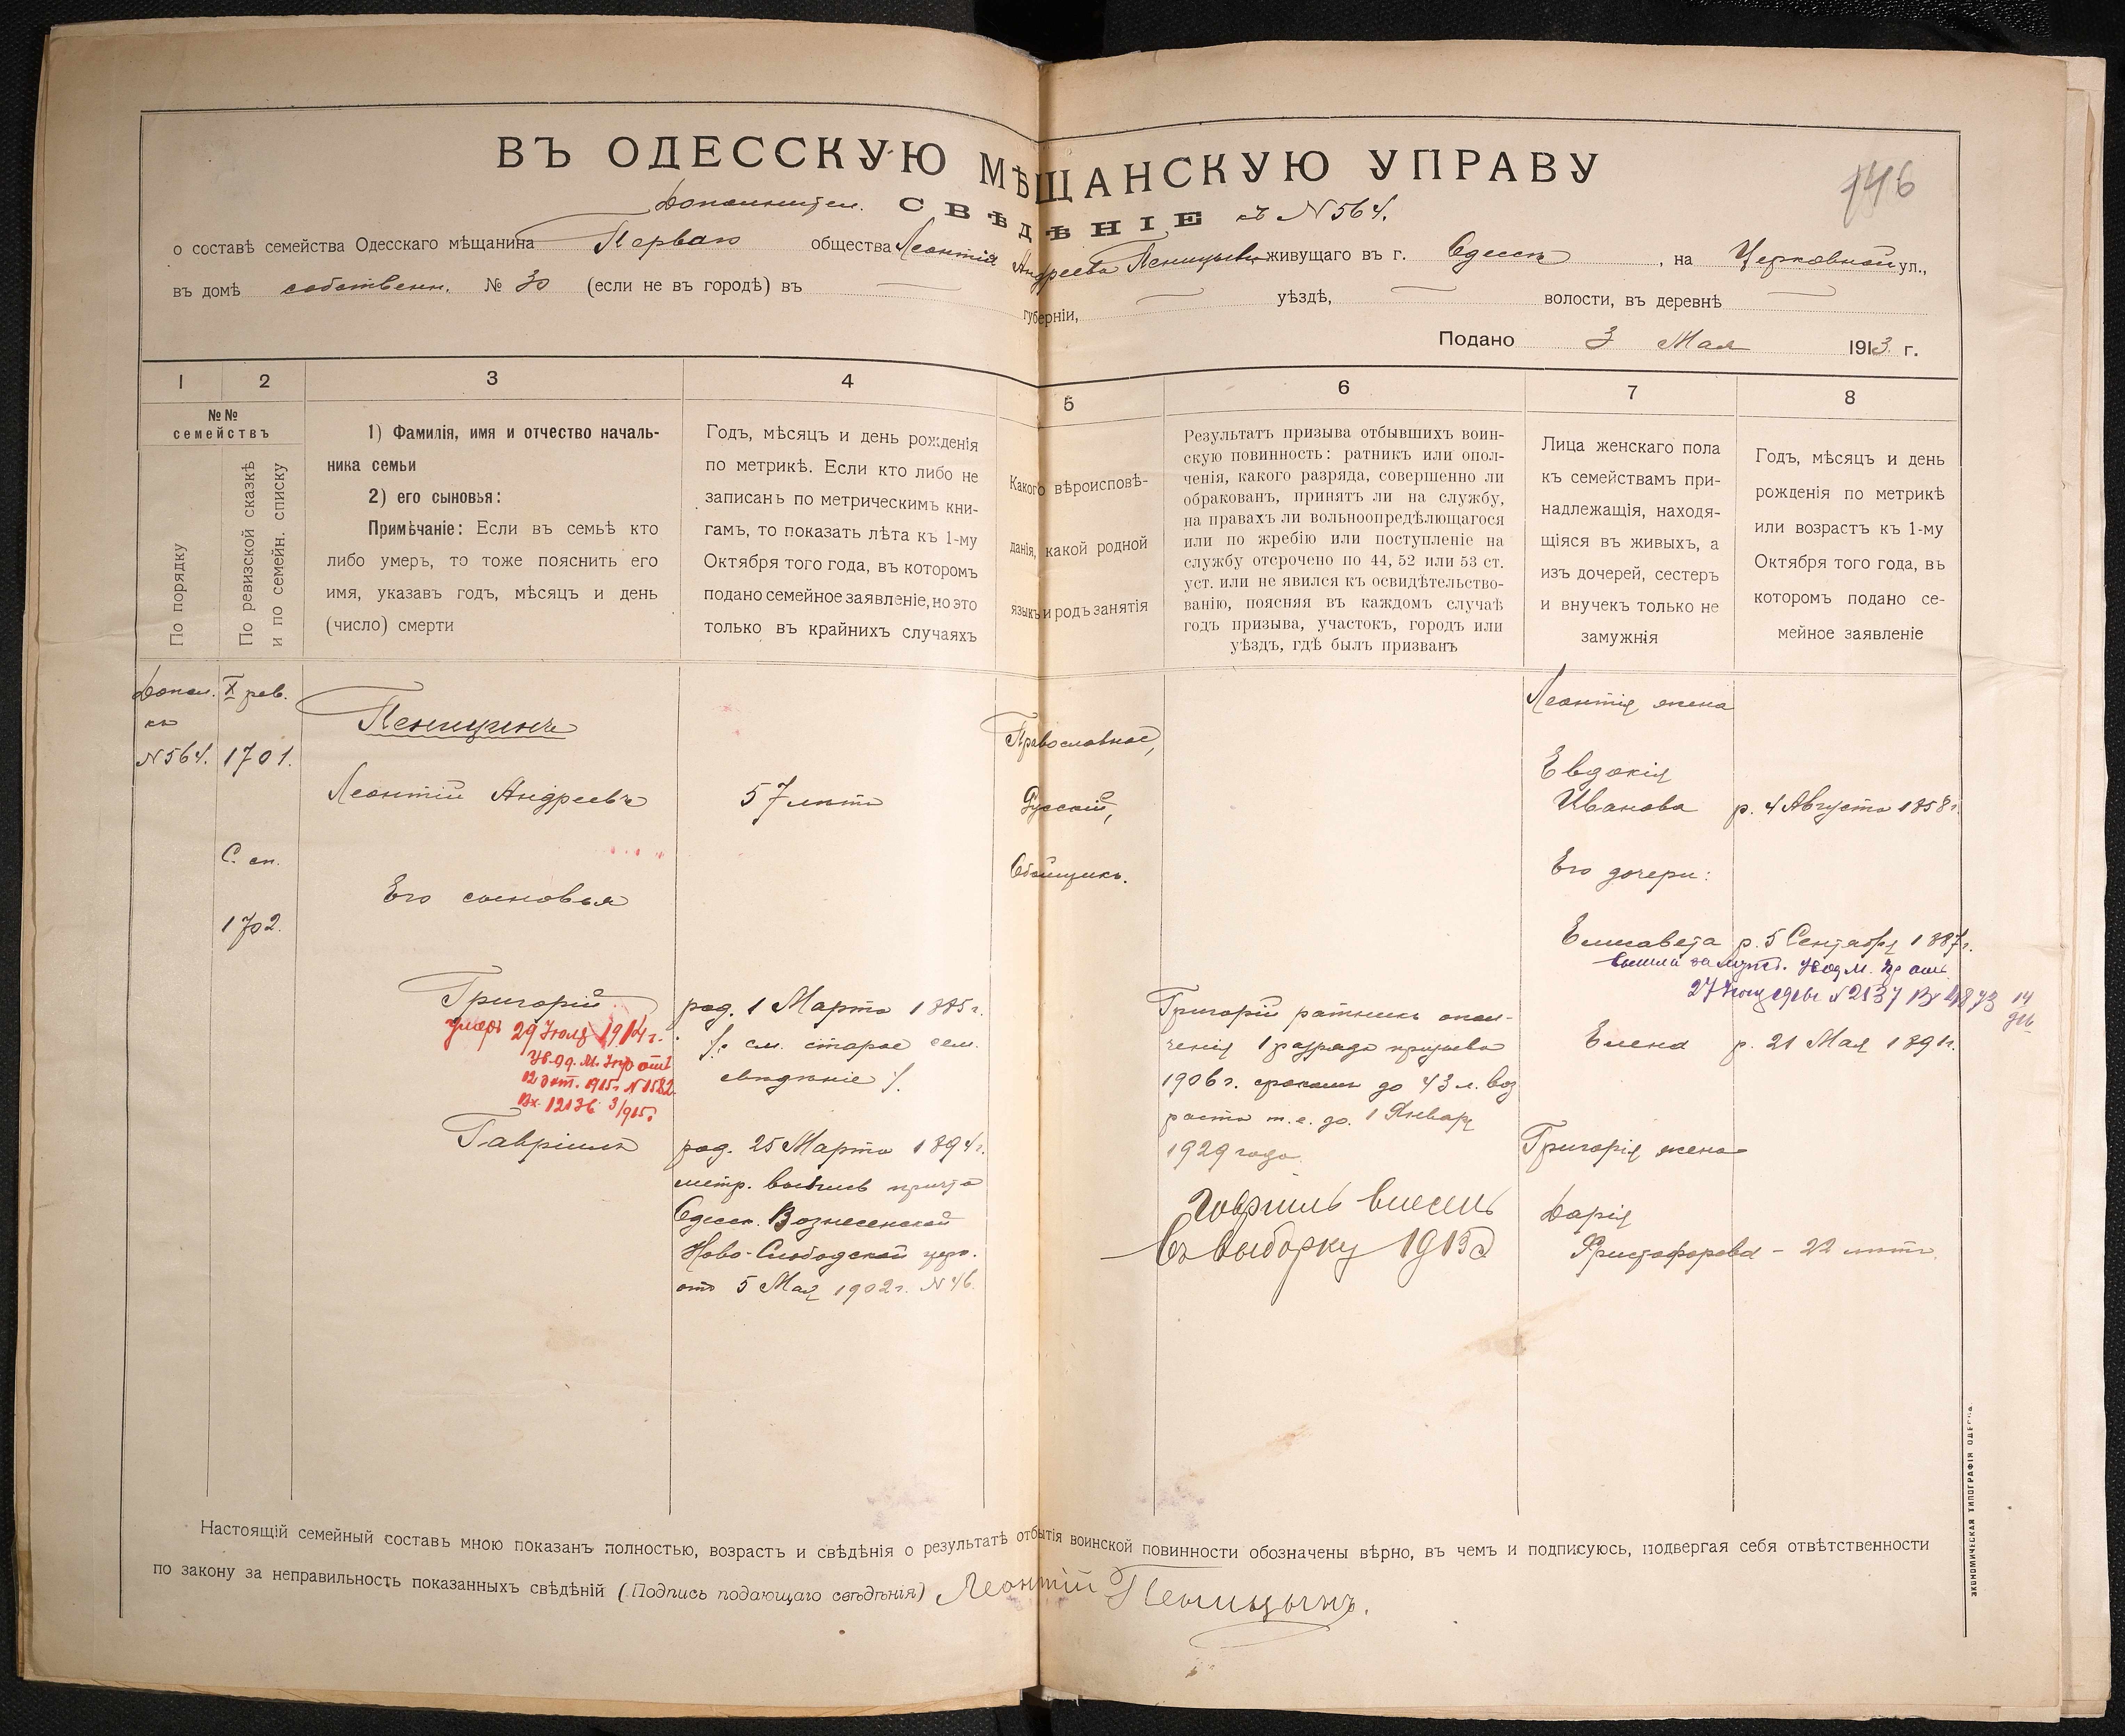 146
ВЪ ОДЕССКУЮ МѢЩАНСКУЮ УПРАВУ
Дополнител. СВѢДѢНІЕ къ №564.
о составѣ семейства Одесскаго мѣщанина Перваго общества Леонтія Андреева живущаго въ г. Одессѣ, на Церковной ул.,
въ домѣ собственн. № 30 (если не въ городѣ) въ — губерніи, — уѣздѣ, — волости, въ деревнѣ —
Подано 3 Мая 1913 г.
1
2
3
4
5
6
7
8
№№
семействъ
По порядку
По ревизской сказкѣ
и по семейн. списку
1) Фамилія, имя и отчество началь-
ника семьи
2) его сыновья:
Примѣчаніе: Если въ семьѣ кто
либо умеръ, то тоже пояснить его
имя, указавъ годъ, мѣсяцъ и день
(число) смерти
Годъ, мѣсяцъ и день рожденія
по метрикѣ. Если кто либо не
записанъ по метрическимъ кни-
гамъ, то показать лѣта къ 1-му
Октября того года, въ которомъ
подано семейное заявленіе, но это
только въ крайнихъ случаяхъ
Какого вѣроисповѣ-
данія, какой родной
языкъ и родъ занятія
Результатъ призыва отбывшихъ воин-
скую повинность: ратникъ или опол-
ченія, какого разряда, совершенно ли
обракованъ, принятъ ли на службу,
на правахъ ли вольноопредѣлющагося
или по жребію или поступленіе на
службу отсрочено по 44, 52 или 53 ст.
уст. или не явился къ освидѣтельство-
ванію, поясняя въ каждомъ случаѣ
годъ призыва, участокъ, городъ или
уѣздъ, гдѣ былъ призванъ
Лица женскаго пола
къ семействамъ при-
надлежащія, находя-
щіяся въ живыхъ, а
изъ дочерей, сестеръ
и внучекъ только не
замужнія
Годъ, мѣсяцъ и день
рожденія по метрикѣ
или возрастъ къ 1-му
Октября того года, въ
которомъ подано се-
мейное заявленіе
Допол.
къ
№564.
X рев.
1701.
С. сп.
1702.
Пеницинъ
Леонтій Андреевъ
Его сыновья
Григорій
умеръ 29 Іюля 1914 г.
12 окт. 1915 г. №1582
Вх. 12136 3/915 г.
Гавріилъ
57 лѣтъ
род. 1 Марта 1885 г.
/: см. старое сем.
свѣдѣніе /.
род. 25 Марта 1894 г.
метр. выпись причта
Одесск. Вознесенской
Ново-Слободской церк.
отъ 5 Мая 1902 г. №46.
Православное,
Русскій,
Обойщикъ.
Григорій ратникъ опол-
ченія 1 разряда призыва
1906 г. срокомъ до 43 л. воз
раста т.е. до 1 Января
1929 года.
Гавріилъ внесенъ
въ выборку 1915 г.
Леонтія жена
Евдокія
Иванова
р. 4 Августа 1858 г.
Его дочери:
Елисавета р. 5 Сентября 1887 г.
вышла замужъ.
№2137 Вх 4873
Елена р. 21 Мая 1891 г.
Григорія жена
Дарія
Христофорова - 22 лѣтъ.
Настоящій семейный составъ мною показанъ полностью, возрастъ и свѣдѣнія о результатѣ отбытія воинской повинности обозначены вѣрно, въ чемъ и подписуюсь, подвергая себя отвѣтственности
по закону за неправильность показанныхъ свѣдѣній (Подпись подающаго свѣдѣнія) Леонтій Пеницынъ.
ЭКОНОМИЧЕСКАЯ ТИПОГРАФІЯ ОДЕССА